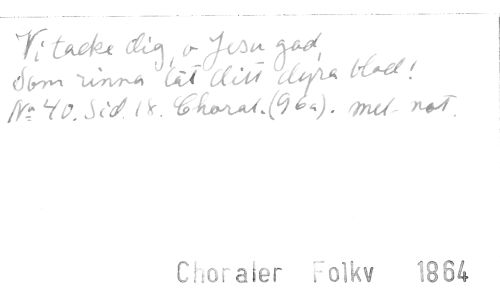 Vi tacke dig, o Jesu god,
Som rinna lät ditt dyra blod!
No 40. Sid. 18. Choral. (96a). mel. not.
Choraler Folkv 1864